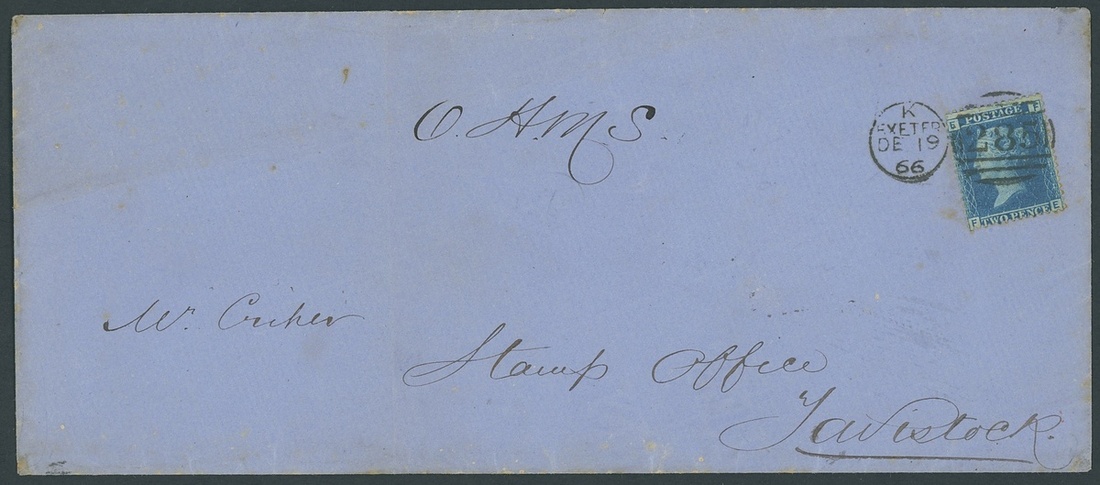 O.H.M.S.
K
EXETER
DE 19
66
285
E POSTAGE F
F TWO PENCE E
Mr.
Stamp Office
Tavistock.